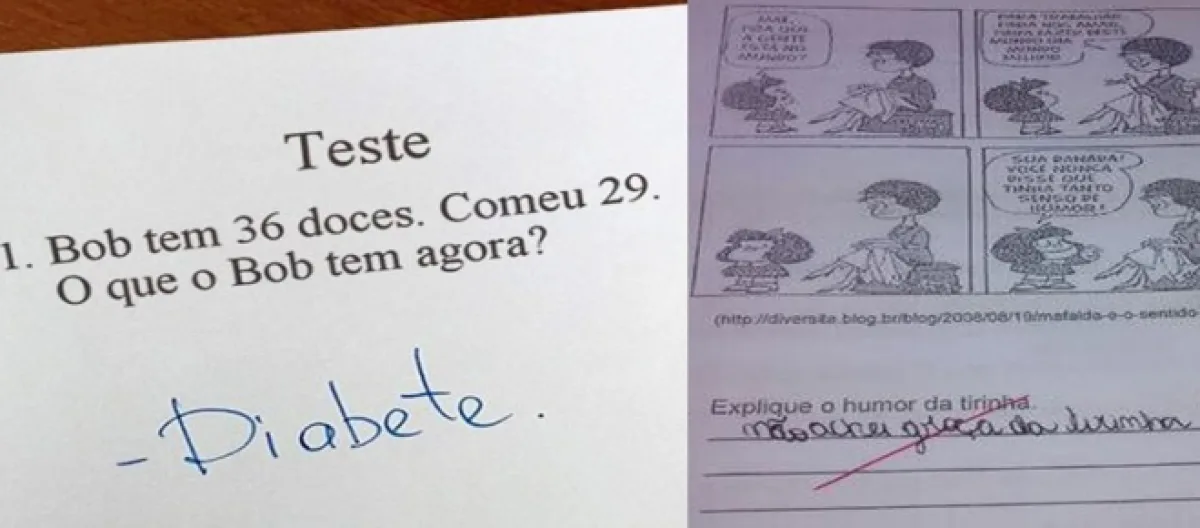 Teste
1. Bob tem 36 doces. Comeu 29.
O que o Bob tem agora?
- Diabete.
MÃE,
PRA QUE
A GENTE
ESTÁ NO
MUNDO?
PARA TRABALHAR,
PARA NOS AMAR,
PARA FAZER DESTE
MUNDO UM
MUNDO
MELHOR
SUA DANADA!
VOCÊ NUNCA
DISSE QUE
TINHA TANTO
SENSO DE
HUMOR!
(http://diversita.blog.br/blog/2008/08/19/mafalda-e-o-sentido-
Explique o humor da tirinha.
não achei graça da tirinha